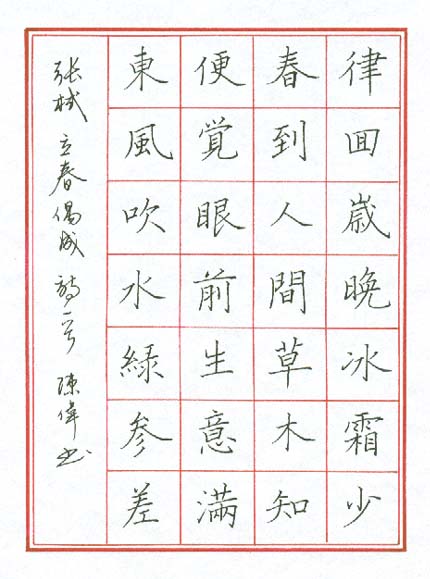 律回歳晚冰霜少
春到人間草木知
便覚眼前生意滿
東風吹水緑参差
张栻立春偶成诗一首 陳偉书